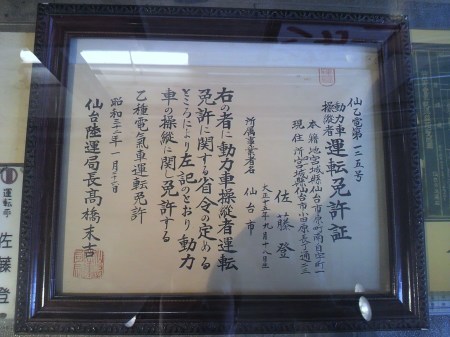 仙乙電第一三五号
動力車
操縦者
運転免許証
本籍地宮城県仙台市原町南目
現住所宮城県仙台市小田原
佐藤登
大正十五年九月十八日生
所属事業者名 仙台市
右の者に動力車操縦者運転
免許に関する省令の定める
ところにより左記のとおり動力
車の操縦に関し免許する
乙種電気車運転免許
昭和三十二年一月
仙台陸運局長高橋末吉
運転士
佐藤登